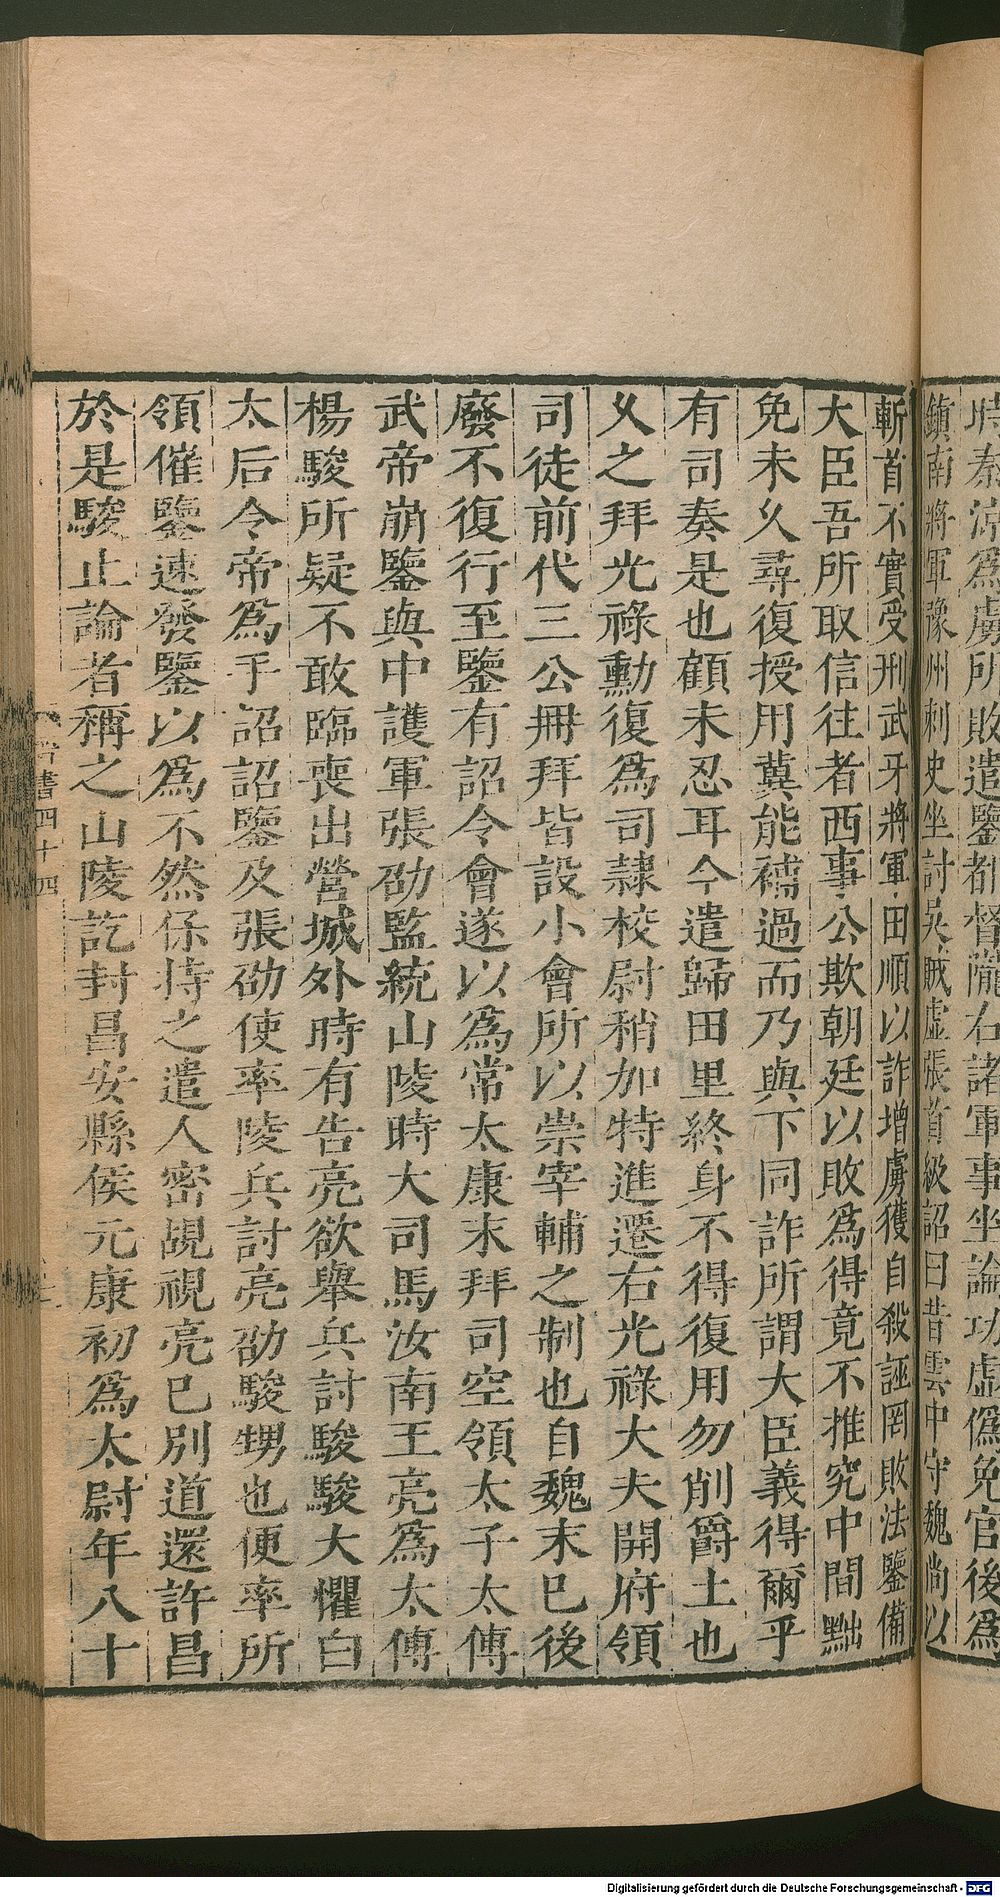 時秦涼爲虜所敗遣鑒都督隴右諸軍事坐論功虛僞免官後爲
鎮南將軍豫州刺史坐討吳賊虛張首級詔曰昔雲中守魏尚以
斬首不實受刑武牙將軍田順以詐增虜獲自殺誣罔敗法鑒備
大臣吾所取信往者西事公欺朝廷以敗爲得竟不推究中間黜
免未久尋復授用冀能補過而乃與下同詐所謂大臣義得爾乎
有司奏是也顧未忍耳今遣歸田里終身不得復用勿削爵土也
乂之拜光祿勳復爲司隷校尉稍加特進遷右光祿大夫開府領
司徒前代三公冊拜皆設小會所以崇宰輔之制也自魏末已後
廢不復行至鑒有詔令會遂以爲常太康末拜司空領太子太傅
武帝崩鑒與中護軍張劭監統山陵時大司馬汝南王亮爲太傅
楊駿所疑不敢臨喪出營城外時有告亮欲舉兵討駿駿大懼白
太后令帝爲手詔詔鑒及張劭使率陵兵討亮劭駿甥也便率所
領催鑒速發鑒以爲不然保持之遣人密覘視亮已別道還許昌
於是駿止論者稱之山陵訖封昌安縣侯元康初爲太尉年八十
晉書四十四
Digitalisierung gefördert durch die Deutsche Forschungsgemeinschaft - DFG